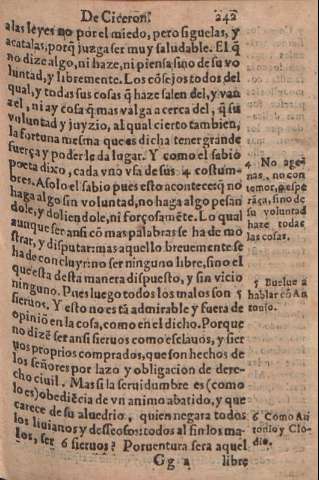 De Ciceron. 242
a las leyes no por el miedo, pero siguelas, y
acatalas, porq̃ juzga ser muy saludable. El q̃
no dize algo, ni haze, ni piensa sino de su vo
luntad, y libremente. Los cõsejos todos del
qual, y todas sus cosas q̃ haze salen del, y van
a el, ni ay cosa q̃ mas valga acerca del, q̃ su
voluntad y juyzio, al qual cierto tambien,
la fortuna mesma que es dicha tener grande
fuerça y poder le da lugar. Y como el sabio
poeta dixo, cada vno vsa de sus 4 costum-
bres. A solo el sabio pues esto acontece: q̃ no
haga algo sin voluntad, no haga algo pesan
dole, y doliendole, ni forçosamẽte. Lo qual
aunque ser ansi cõ mas palabras se ha de mo
strar, y disputar: mas aquello breuemente se
ha de concluyr: no ser ninguno libre, sino el
que està desta manera dispuesto, y sin vicio
ninguno. Pues luego todos los malos son 5
sieruos. Y esto no es tã admirable y fuera de
opiniõ en la cosa, como en el dicho. Porque
no dizẽ ser ansi sieruos como esclauos, y sier
uos proprios comprados, que son hechos de
los señores por lazo y obligacion de dere-
cho ciuil. Mas si la seruidumbre es (como
lo es) obediẽcia de vn animo abatido, y que
carece de su aluedrio, quien negara todos
los liuianos y desseosos: todos al fin los ma-
los, ser 6 sieruos? Por uentura sera aquel
Gg 2 libre
4 No age
nas, no con
temor, o espe
rãça, sino de
su voluntad
haze todas
las cosas.
5 Buelue a
hablar cõ An
tonio.
6 Como An
tonio y Clo-
dio.